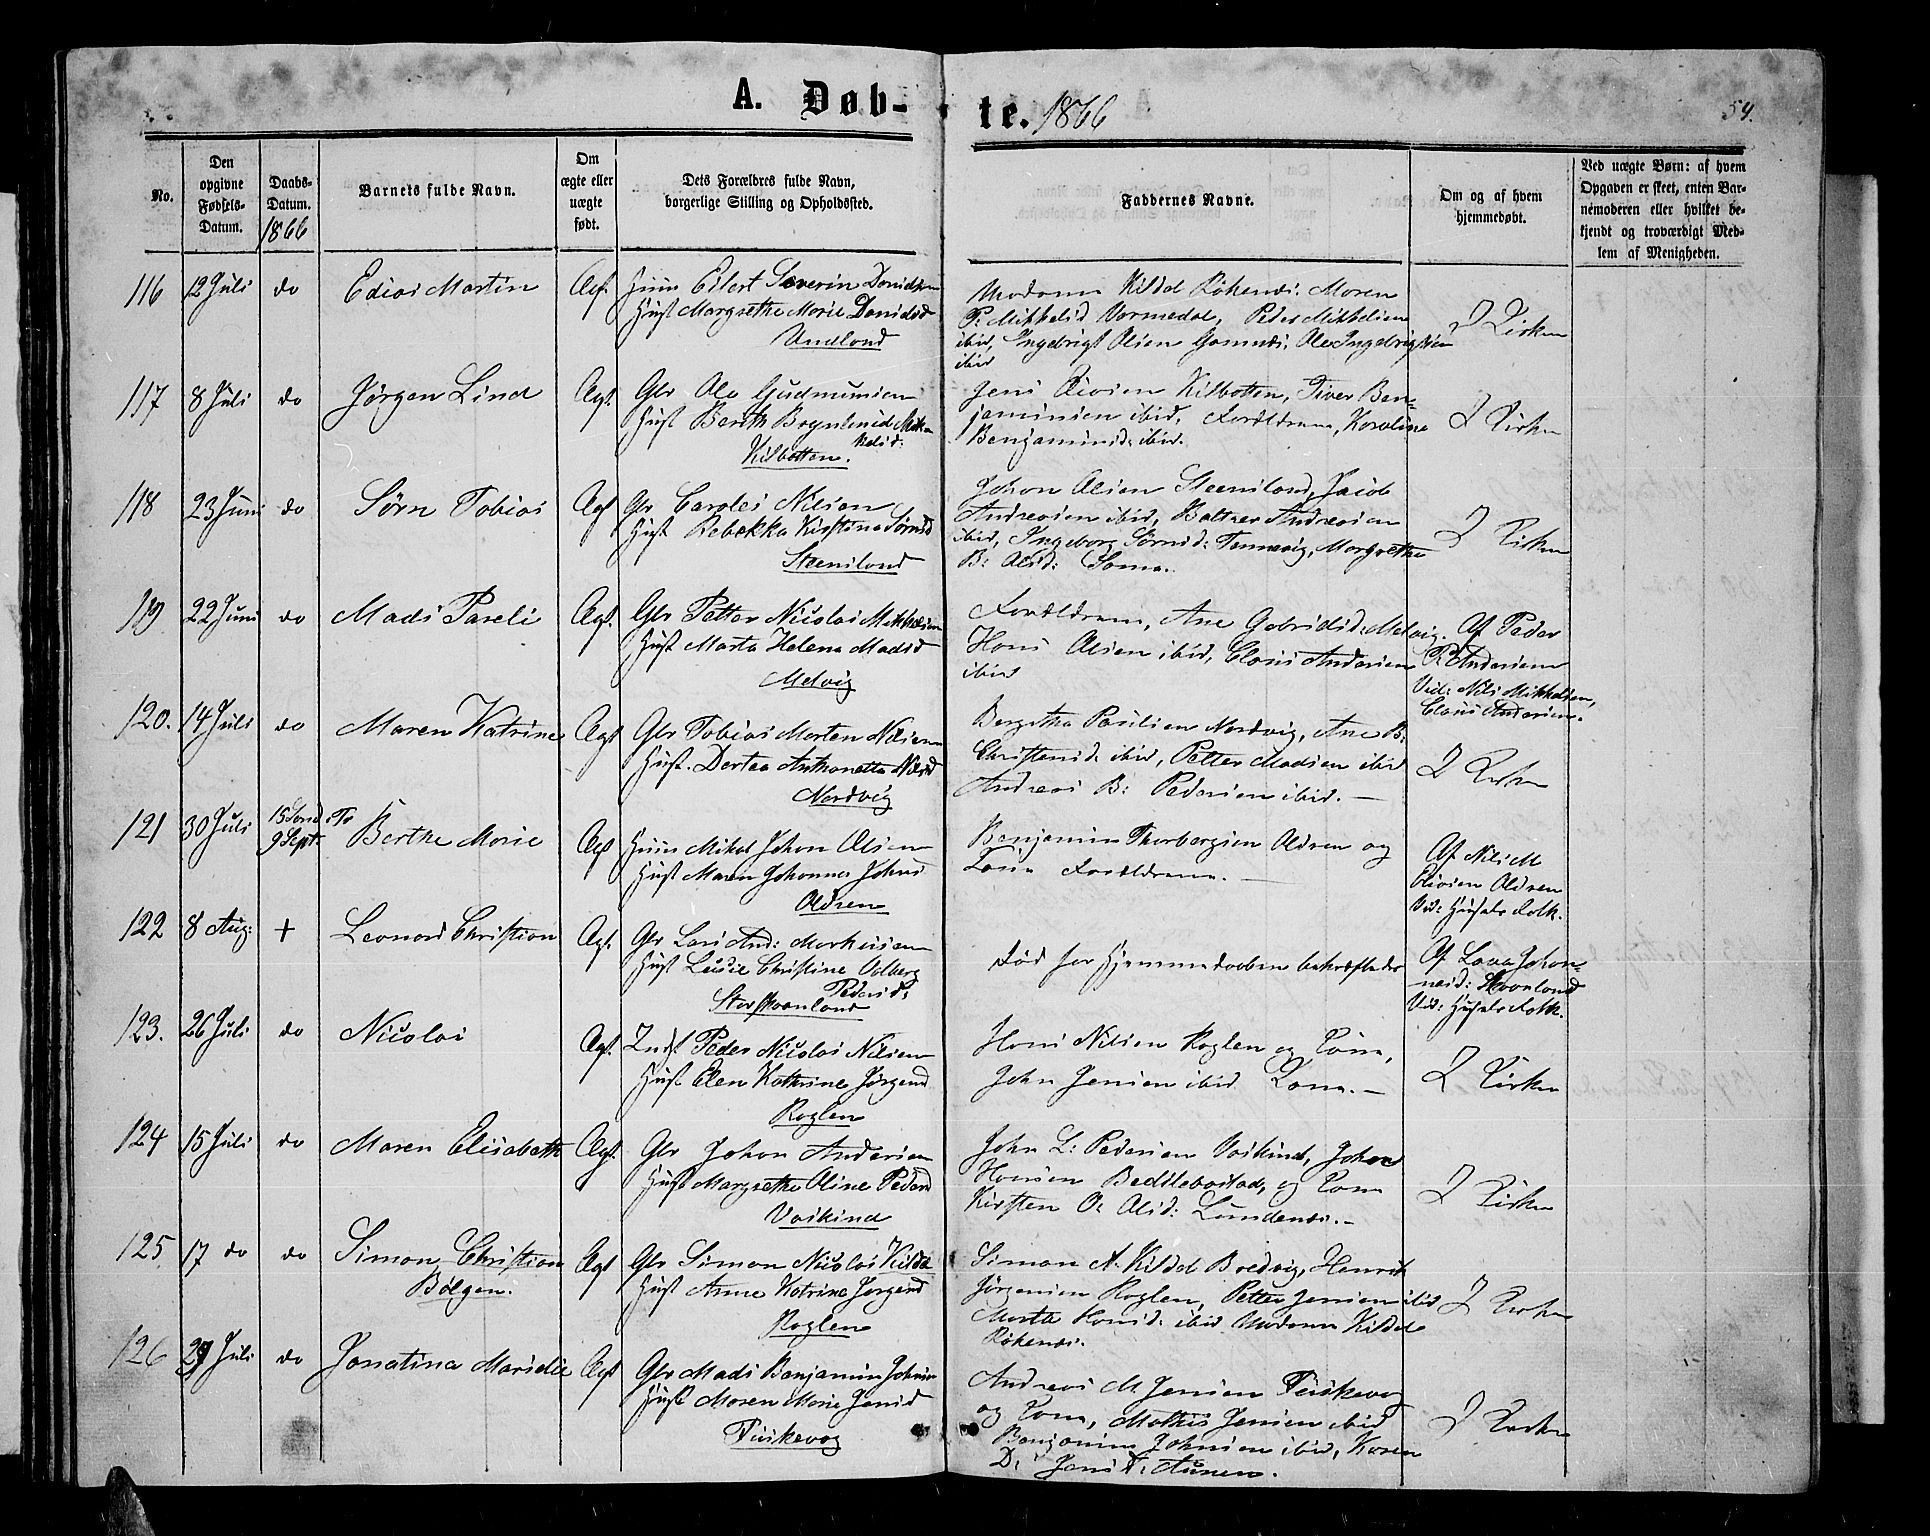 A. Døb-te. 1866
54.
No.
Den opgivne Fødsels-Datum.
Daabs-Datum. 1866
Barnets fulde Navn.
Om ægte eller uægte født.
Dets Forældres fulde Navn, borgerlige Stilling og Opholdssted.
Faddernes Navne.
Om og af hvem hjemmedøbt.
Ved uægte Børn: af hvem
Opgaven er skeet, enten Bar-
nemoderen eller hvilket be-
kjendt og troværdigt Med-
lem af Menigheden.
116 12 Juli do Edias Martin Ægt
Huus Eilert Severin
Hust Margrethe Marie
Madame Kildal Røkenæs. Maren
P: Mikkelsd Vormedal, Peder Mikkelsen
ibid, Ingebrigt Olsen Gamnæs, Ole Ingebrigtsen
ibid
I Kirken
117 8 Juli do Jørgen Lind Ægt.
Gbr Ole Gudmunsen
Hust Berith
Kilbotten.
Jens Olsen Kilbotten, Siver Ben-
jaminsen ibid, Forældrene, Karoline
Benjaminsd: ibid.
I Kirken
118 23 Juni do Sørn Tobias Ægt
Gbr Carolus Nilsen
Hust Rebekka Kirstine Sørnsd
Steensland
Johan Olsen Steensland, Jacob
Andreasen ibid, Baltzer Andreasen
ibid, Ingeborg Sørnsd: Tennevig, Margrethe
B: Olsd: Sama.
I Kirken
119 22 Juni do Mads Pareli Ægt.
Gbr Petter Nicolai Mikkelsen
Hust Marta Helena Madsd
Melvig
Forældrene, Ane Gabrielsd: Melvig.
Hans Olsen ibid, Claus Andersen
ibid
Af Peder
P: Andersen
Vid: Nils Mikkelsen,
Claus Andersen.
120. 14 Juli do Maren Katrine Ægt
Gbr Tobias Morten Nilsen
Hust. Dortea Anthonetta Nilsd
Nordvig
Bergitha Paulsen Nordvig, Ane B:
Christensd: ibid, Petter Madsen ibid
Andreas B: Pedersen ibid. —
I Kirken
121 30 Juli 15 Sønd: Tr 9 Sept: Berthe Marie Ægt
Huus Mikal Johan Olsen
Hust Maren Johanna Johnsd
Aldren
Benjamin Thorbergsen Aldren og
Kone Forældrene. —
Af Nils M
Olsen Aldren
Vid: Husets Folk.
122 8 Aug: + Leonard Christian Ægt.
Gbr Lars And: Markusen
Hust Lucie Christine Volberg
Pedersd:
Storskaanland
Død før Hjemmedaaben bekræftedes
Af Lava Johan-
nesd: Skaanland
Vid: Husets Folk.
123. 26 Juli do Nicolai Ægt.
Inst Peder Nicolai Nilsen
Hust Elen Kathrine Jørgensd
Roglen
Hans Nilsen Roglen og Kone,
John Jensen ibid Kone. —
I Kirken
124 15 Juli do Maren Elisabeth Ægt.
Gbr Johan Andersen
Hust Margrethe Oline Pedersd
Voikind
John L: Pedersen Voikind, Johan
Hansen og Kone
Kirsten O: Olsd: Lundenæs. —
I Kirken
125. 17 do do Simon Christian Bølgen. Ægt
Gbr Simon Nicolai Kildal
Hust Anne Katrine Jørgensd
Roglen
Simon A. Kildal Bredvig, Henrik
Jørgensen Roglen, Petter Jensen ibid
Marta Hansd: ibid Madame Kildal
Røkenæs.
I Kirken
126 29 Juli do Jonatina Marselie Ægt
Gbr Mads Benjamin Johnsen
Hust Maren Marie Jensd
Fiskevog
Andreas M. Jensen Fiskevog
og Kone, Mathis Jensen ibid
Benjamin Johnsen ibid, Karen
D: Jensd: Aunen.
I Kirken